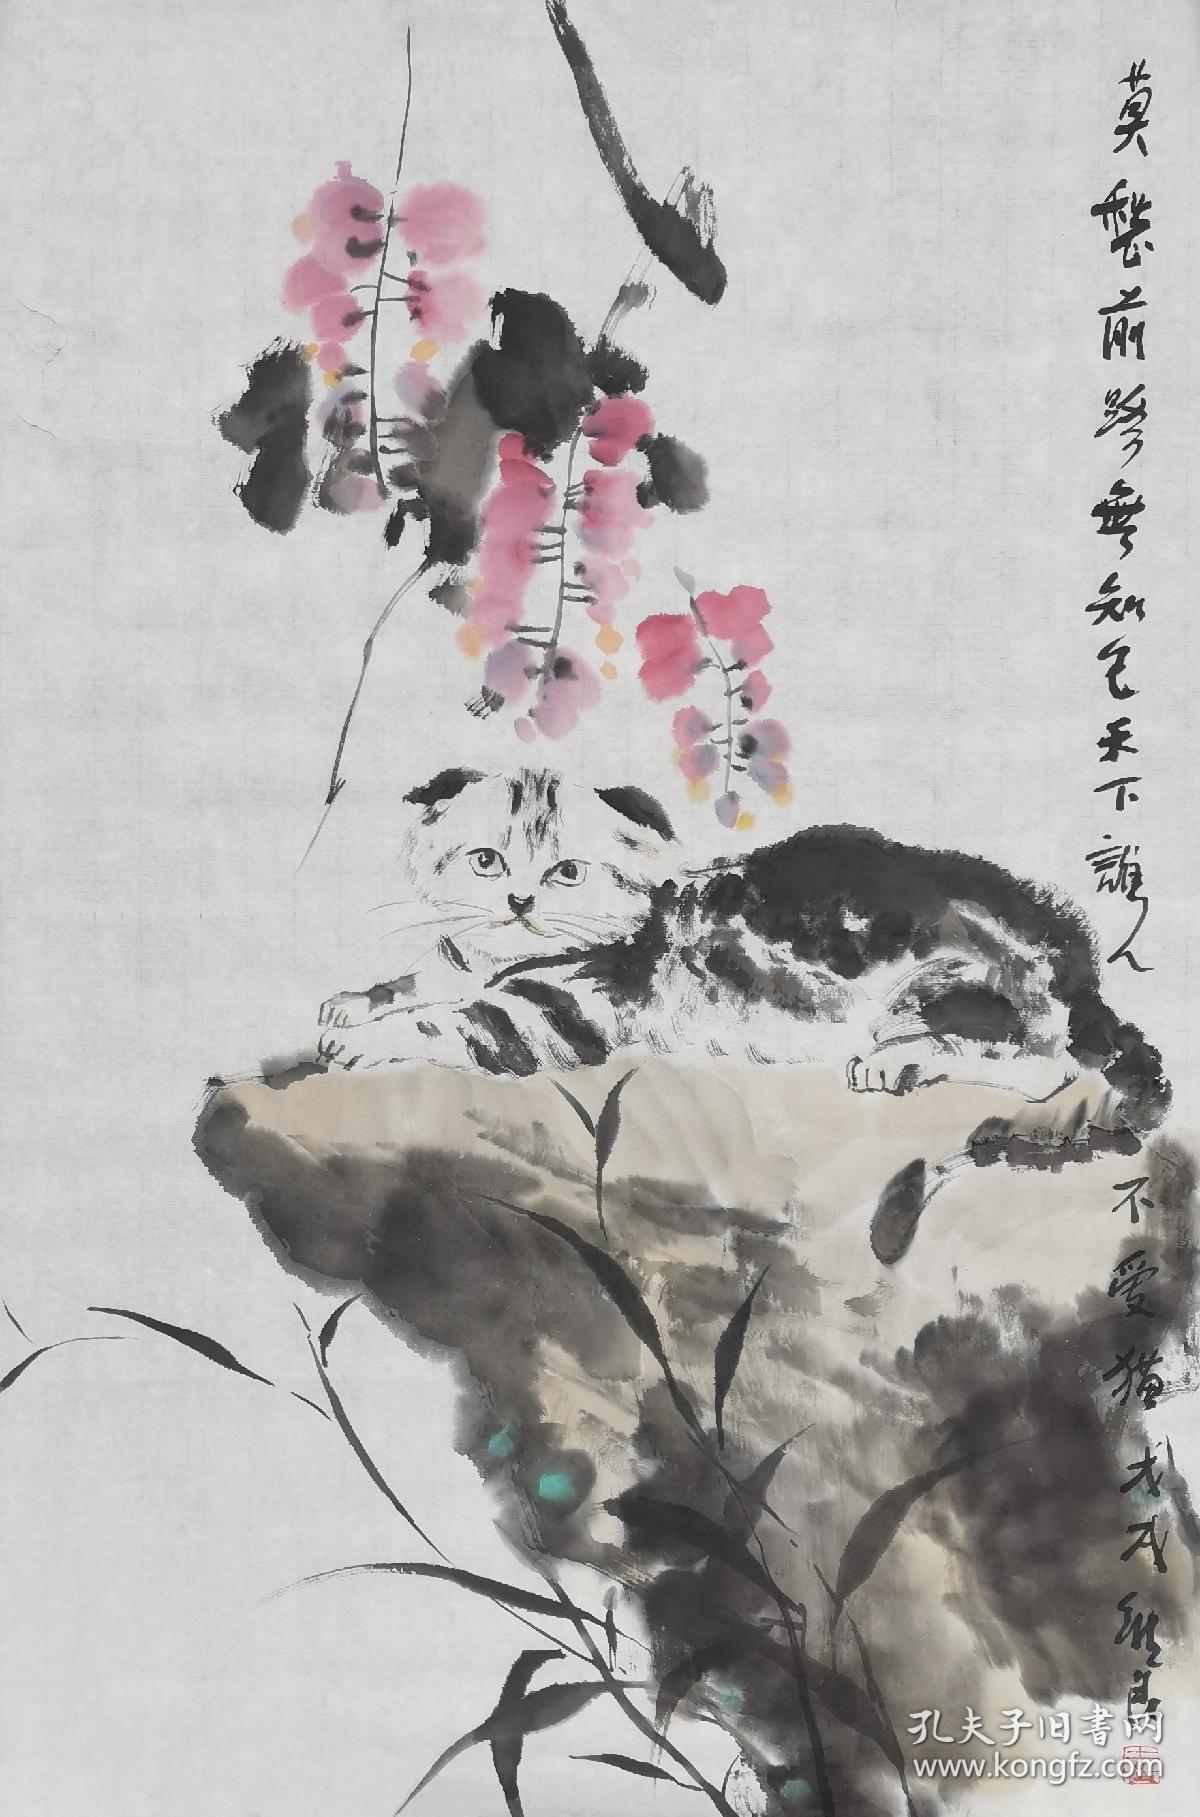 莫愁前路無知己天下誰人不愛猫戊戌維良
孔夫子旧书网
www.kongfz.com